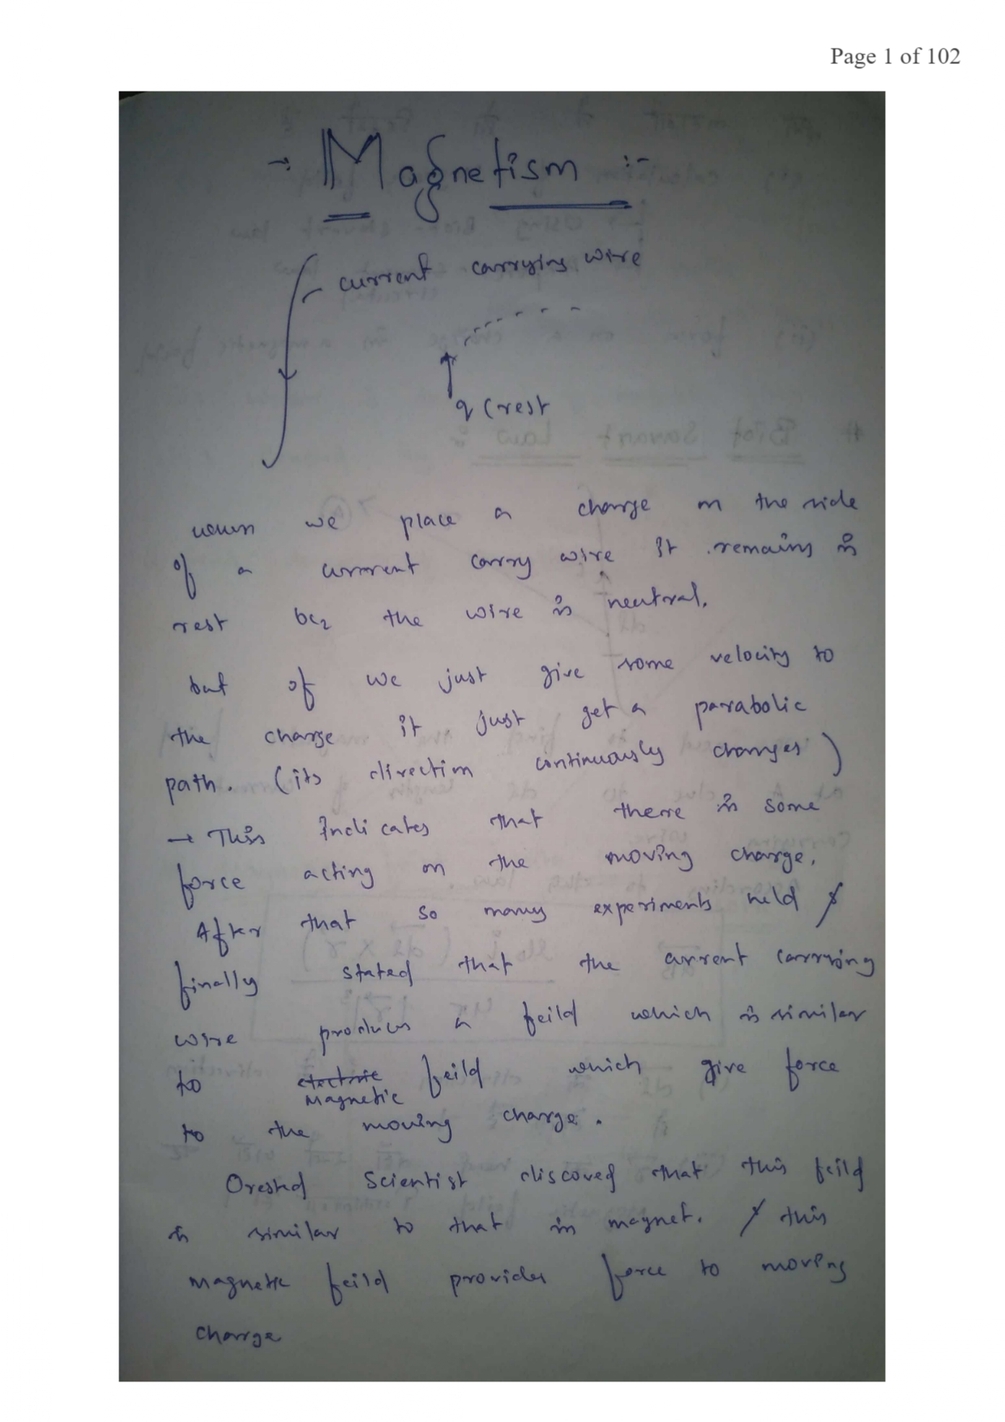 Page 1 of 102
→ Magnetism :-
current carrying wire
q (rest
when we place a charge on the side
of a current carry wire it remains in
rest bcz the wire is neutral.
but if we just give some velocity to
the charge it just get a parabolic
path. (its direction continuously changes)
→ This indicates that there is some
force acting on the moving charge.
After that so many experiments held &
finally stated that the current carrying
wire produces a feild which is similar
to electric feild which give force
magnetic
to the moving charge.
Orested Scientist discoved that this feild
is similar to that in magnet. & this
magnetic feild provides force to moving
charge